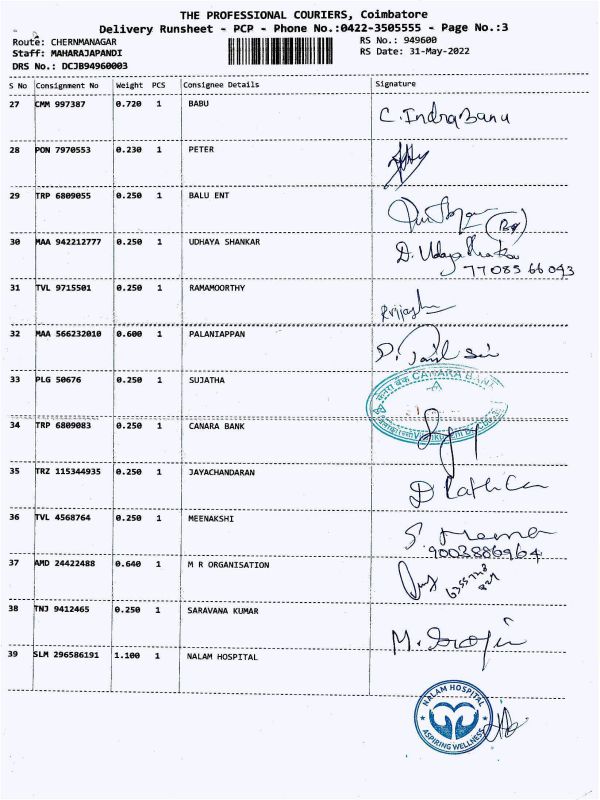 THE PROFESSIONAL COURIERS, Coimbatore
Delivery Runsheet - PCP - Phone No.:0422-3505555 - Page No.:3
Route: CHERNMANAGAR RS No.: 949600
Staff: MAHARAJAPANDI RS Date: 31-May-2022
DRS No.: DCJB94960003
S No Consignment No Weight PCS Consignee Details Signature
27 CMM 997387 0.720 1 BABU C. IndraBanu
28 PON 7970553 0.230 1 PETER
29 TRP 6809055 0.250 1 BALU ENT
30 MAA 942212777 0.250 1 UDHAYA SHANKAR D. Udaya
77085 66043
31 TVL 9715501 0.250 1 RAMAMOORTHY
32 MAA 566232010 0.600 1 PALANIAPPAN
33 PLG 50676 0.250 1 SUJATHA
CANARA BANK
34 TRP 6809083 0.250 1 CANARA BANK
35 TRZ 115344935 0.250 1 JAYACHANDARAN
36 TVL 4568764 0.250 1 MEENAKSHI S. Meena
9003886964
37 AMD 24422488 0.640 1 M R ORGANISATION
38 TNJ 9412465 0.250 1 SARAVANA KUMAR
39 SLM 296586191 1.100 1 NALAM HOSPITAL
NALAM HOSPITAL
ASPIRING WELLNESS